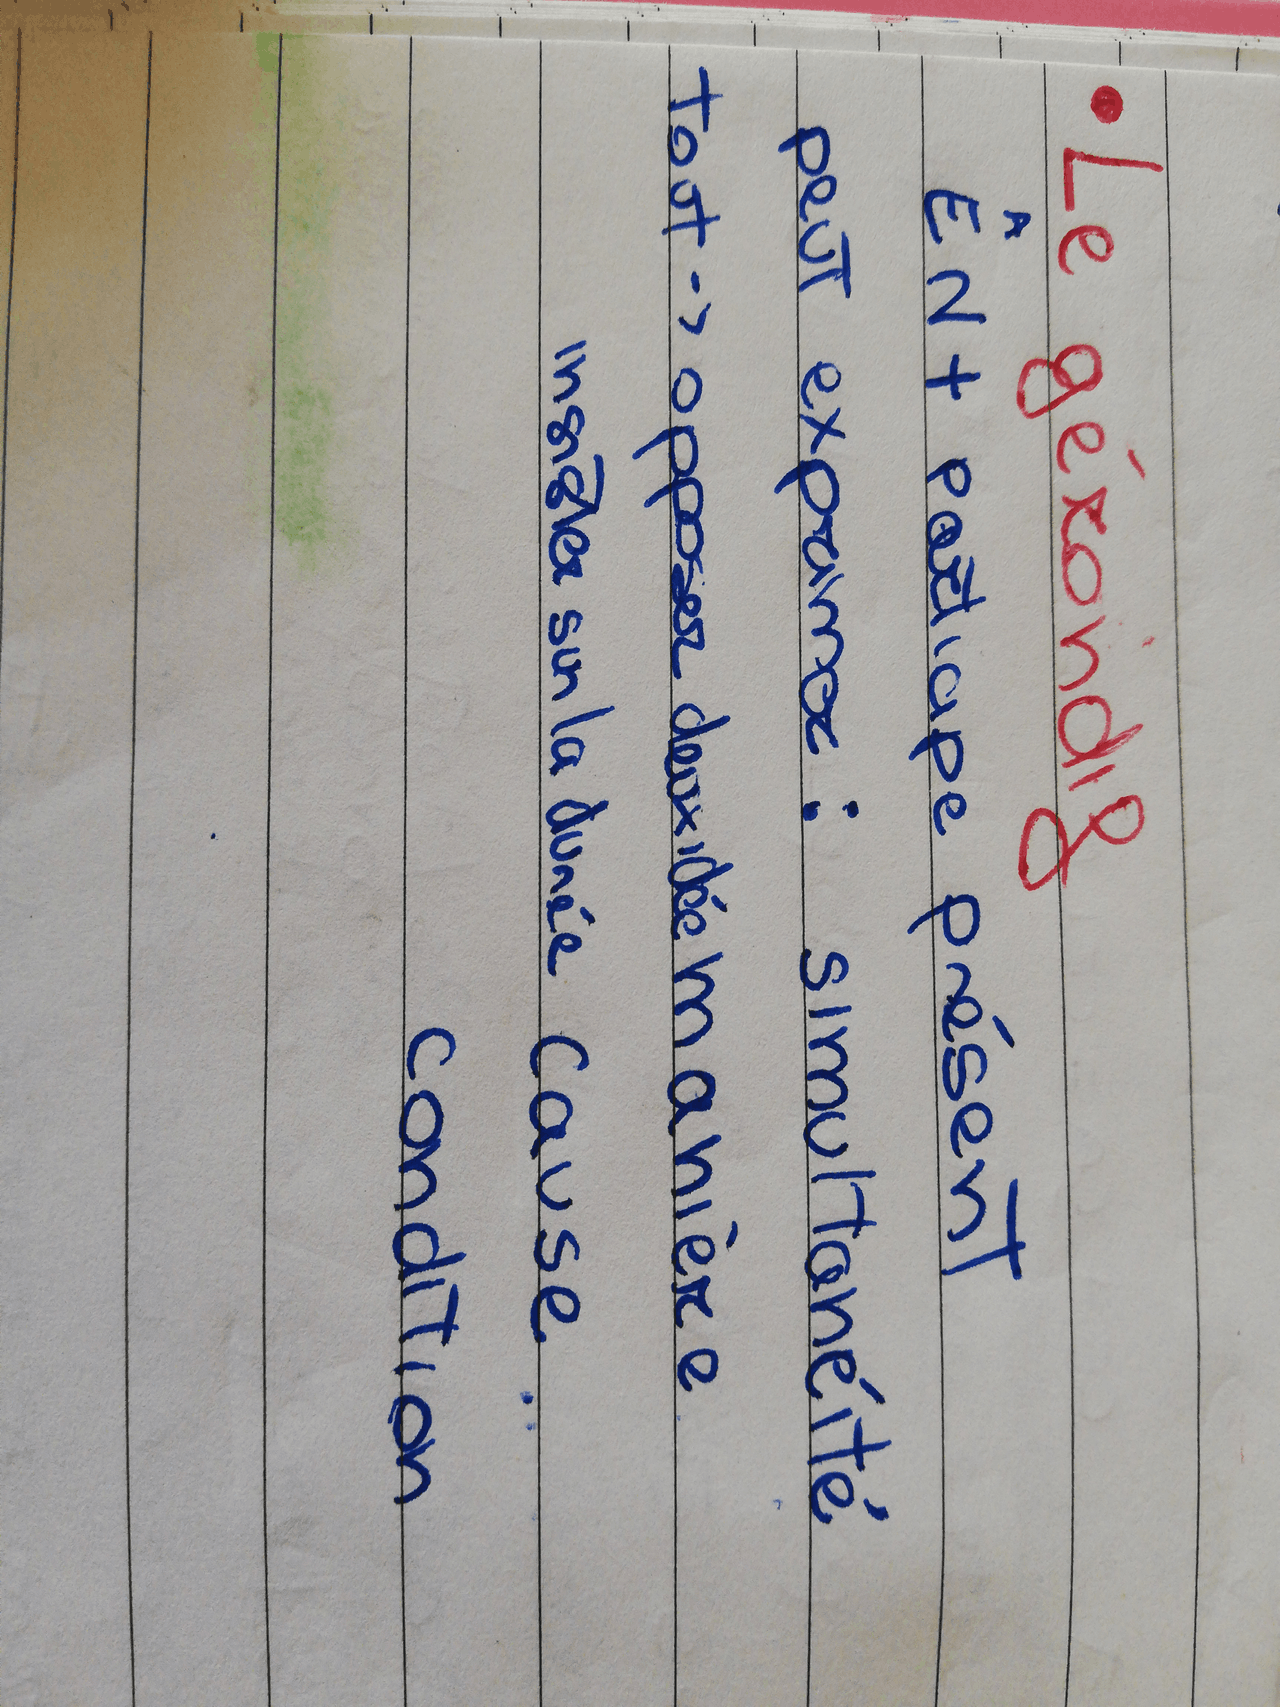 • Le gérondif
ÊN + participe présent
peut exprimer : simultanéité
Tout -> opposer deux idée manière
insister sur la durée cause
condition